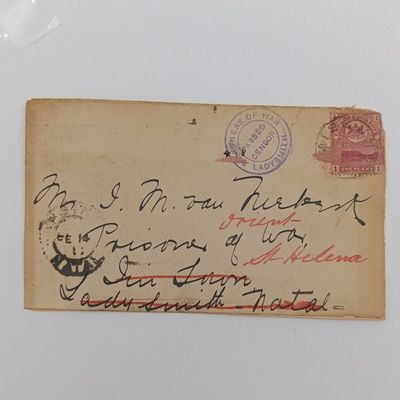 PRISONERS OF WAR
PASSED
CENSOR
LADYSMITH
1 ONE PENNY 1
Mr. J. M. van Niekerk
orient
Prisoner of War
St Helena
Tin Town
Ladysmith - Natal -
FE 14
NATAL